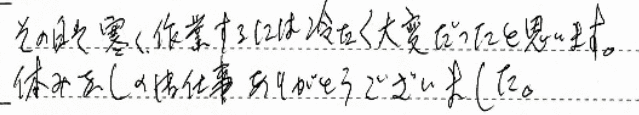 その日も寒く、作業するには冷たく大変だったと思います。
休みなしのお仕事ありがとうございました。